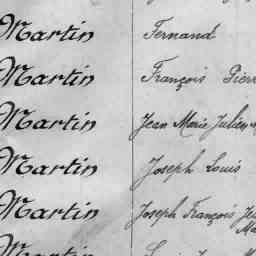 Martin Fernand
Martin François Pierre
Martin Jean Marie Julien
Martin Joseph Louis
Martin Joseph François
Martin